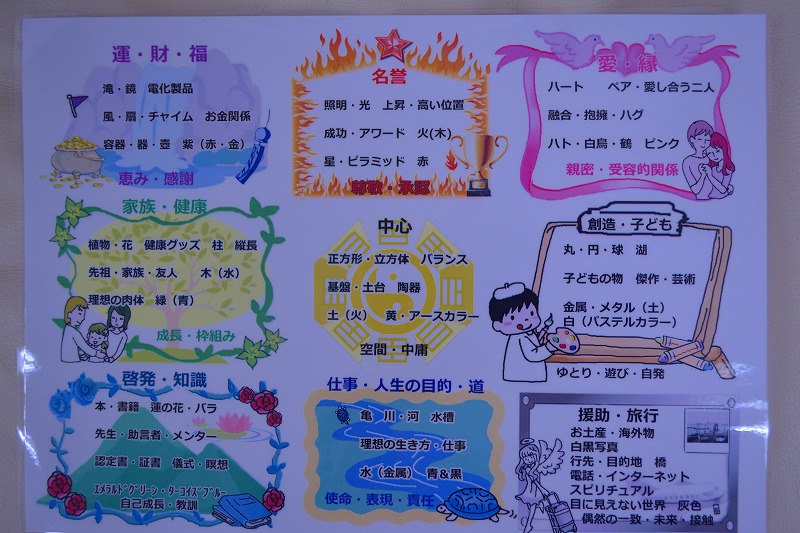 運・財・福
滝・鏡 電化製品
風・扇・チャイム お金関係
容器・器・壺 紫（赤・金）
恵み・感謝
名誉
照明・光 上昇・高い位置
成功・アワード 火(木)
星・ピラミッド 赤
尊敬・承認
愛・縁
ハート ペア・愛し合う二人
融合・抱擁・ハグ
ハト・白鳥・鶴 ピンク
親密・受容的関係
家族・健康
植物・花 健康グッズ 柱 縦長
先祖・家族・友人 木（水）
理想の肉体 緑（青）
成長・枠組み
中心
正方形・立方体 バランス
基盤・土台 陶器
土（火） 黄・アースカラー
空間・中庸
創造・子ども
丸・円・球 湖
子どもの物 傑作・芸術
金属・メタル（土）
白（パステルカラー）
ゆとり・遊び・自発
啓発・知識
本・書籍 蓮の花・バラ
先生・助言者・メンター
認定書・証書 儀式・瞑想
ｴﾒﾗﾙﾄﾞｸﾞﾘｰﾝ・ﾀｰｺｲｽﾞﾌﾞﾙｰ
自己成長・教訓
仕事・人生の目的・道
亀 川・河 水槽
理想の生き方・仕事
水（金属） 青＆黒
使命・表現・責任
援助・旅行
お土産・海外物
白黒写真
行先・目的地 橋
電話・インターネット
スピリチュアル
目に見えない世界 灰色
偶然の一致・未来・接触